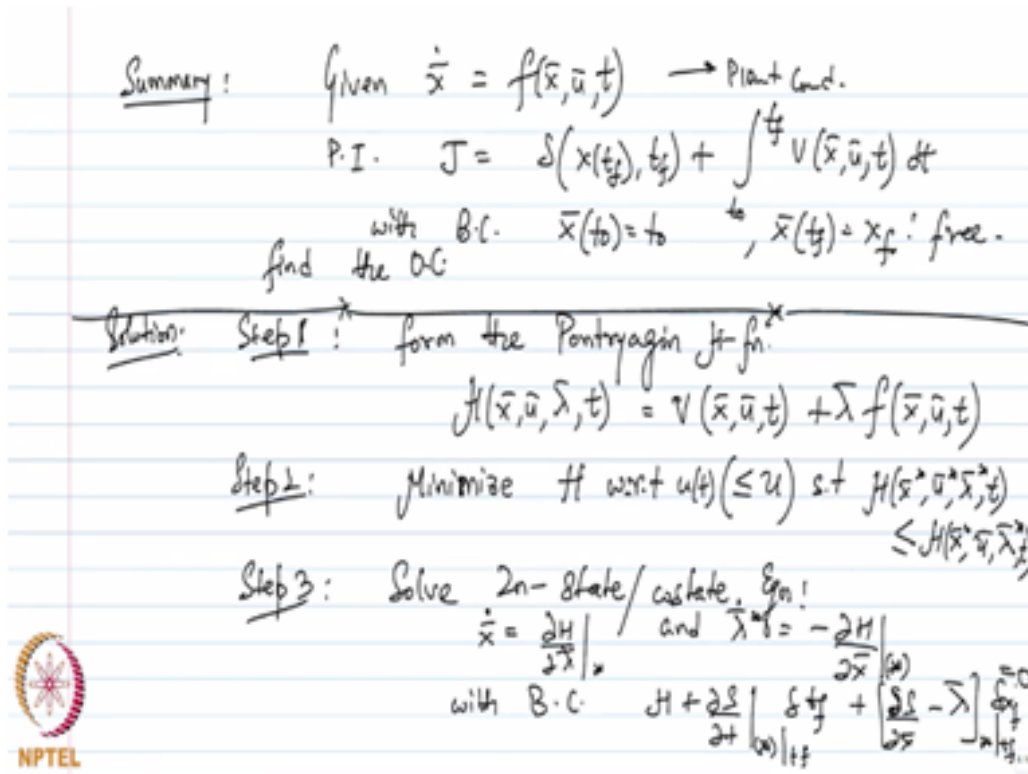 Summary: Given ẋ̄ = f(x̄, ū, t) → Plant Cond.
P.I. J = S(x(t_f), t_f) + ∫_{t_0}^{t_f} V(x̄, ū, t) dt
with B.C. x̄(t_0) = t_0, x̄(t_f) = x_f : free.
find the O.C.
Solution: Step 1: form the Pontryagin H-fn.
H(x̄, ū, λ̄, t) = V(x̄, ū, t) + λ̄ f(x̄, ū, t)
Step 2: Minimize H w.r.t u(t) (≤ U) s.t H(x̄*, ū*, λ̄*, t)
≤ H(x̄*, ū, λ̄*, t)
Step 3: Solve 2n-State/costate Eqn:
ẋ̄ = ∂H/∂λ̄|_* and λ̄* = -∂H/∂x̄|_(*)
with B.C. H + ∂S/∂t|_(*)|_{t_f} δt_f + [∂S/∂x̄ - λ̄]_*|_{t_f} δx_f = 0
NPTEL